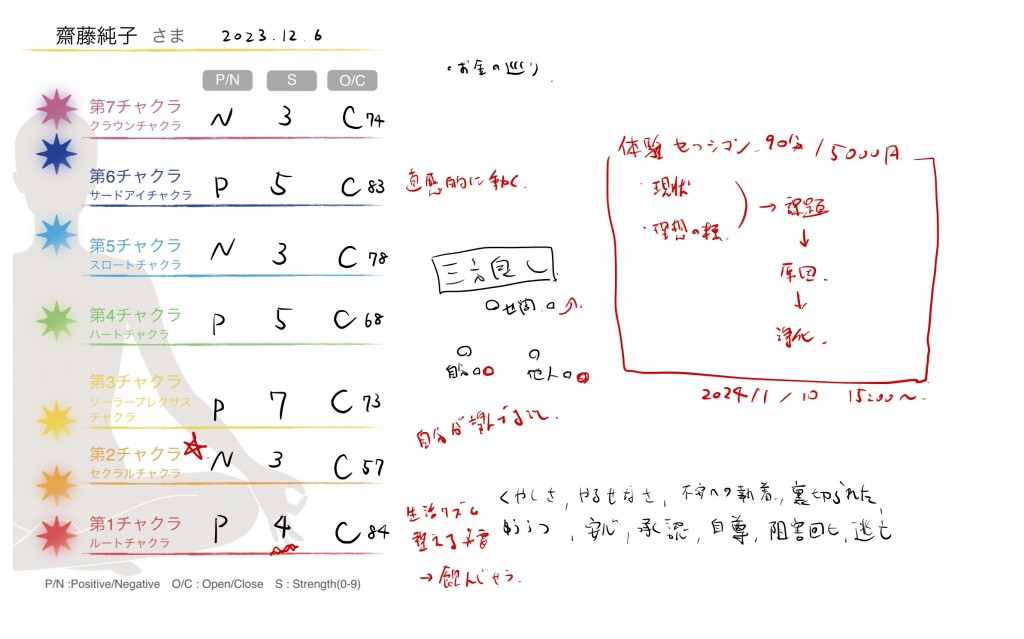 齋藤純子 さま 2023.12.6
P/N S O/C
第7チャクラ
クラウンチャクラ
N 3 C 74
第6チャクラ
サードアイチャクラ
P 5 C 83
第5チャクラ
スロートチャクラ
N 3 C 78
第4チャクラ
ハートチャクラ
P 5 C 68
第3チャクラ
ソーラープレクサス
チャクラ
P 7 C 73
第2チャクラ
セクラルチャクラ
N 3 C 57
第1チャクラ
ルートチャクラ
P 4 C 84
P/N :Positive/Negative O/C : Open/Close S : Strength(0-9)
・お金の巡り
直感的に動く
三方良し
世間
自分 他人
自分が望んでること
生活リズム
整える
→飲んじゃう
体験セッション 90分/5000円
・現状
・理想の
→課題
↓
原因
↓
浄化
2024/1/10 15:00〜
くやしさ, やるせなさ, 不安への執着, 裏切られた,
, 安心, 承認, 自尊, 阻害回避, 逃亡